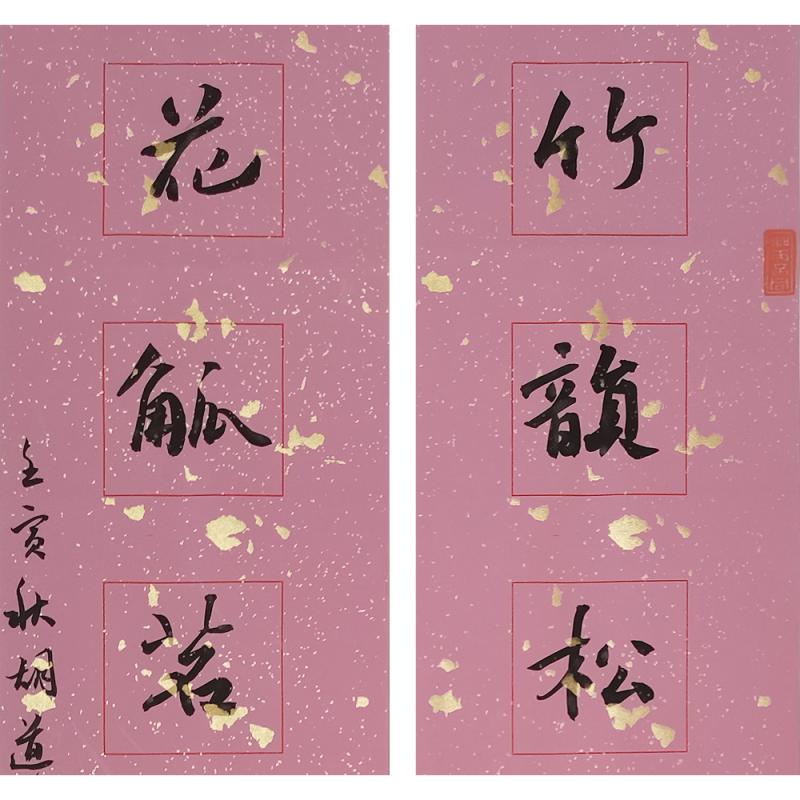 竹韻松
花觚茗
壬寅秋胡道